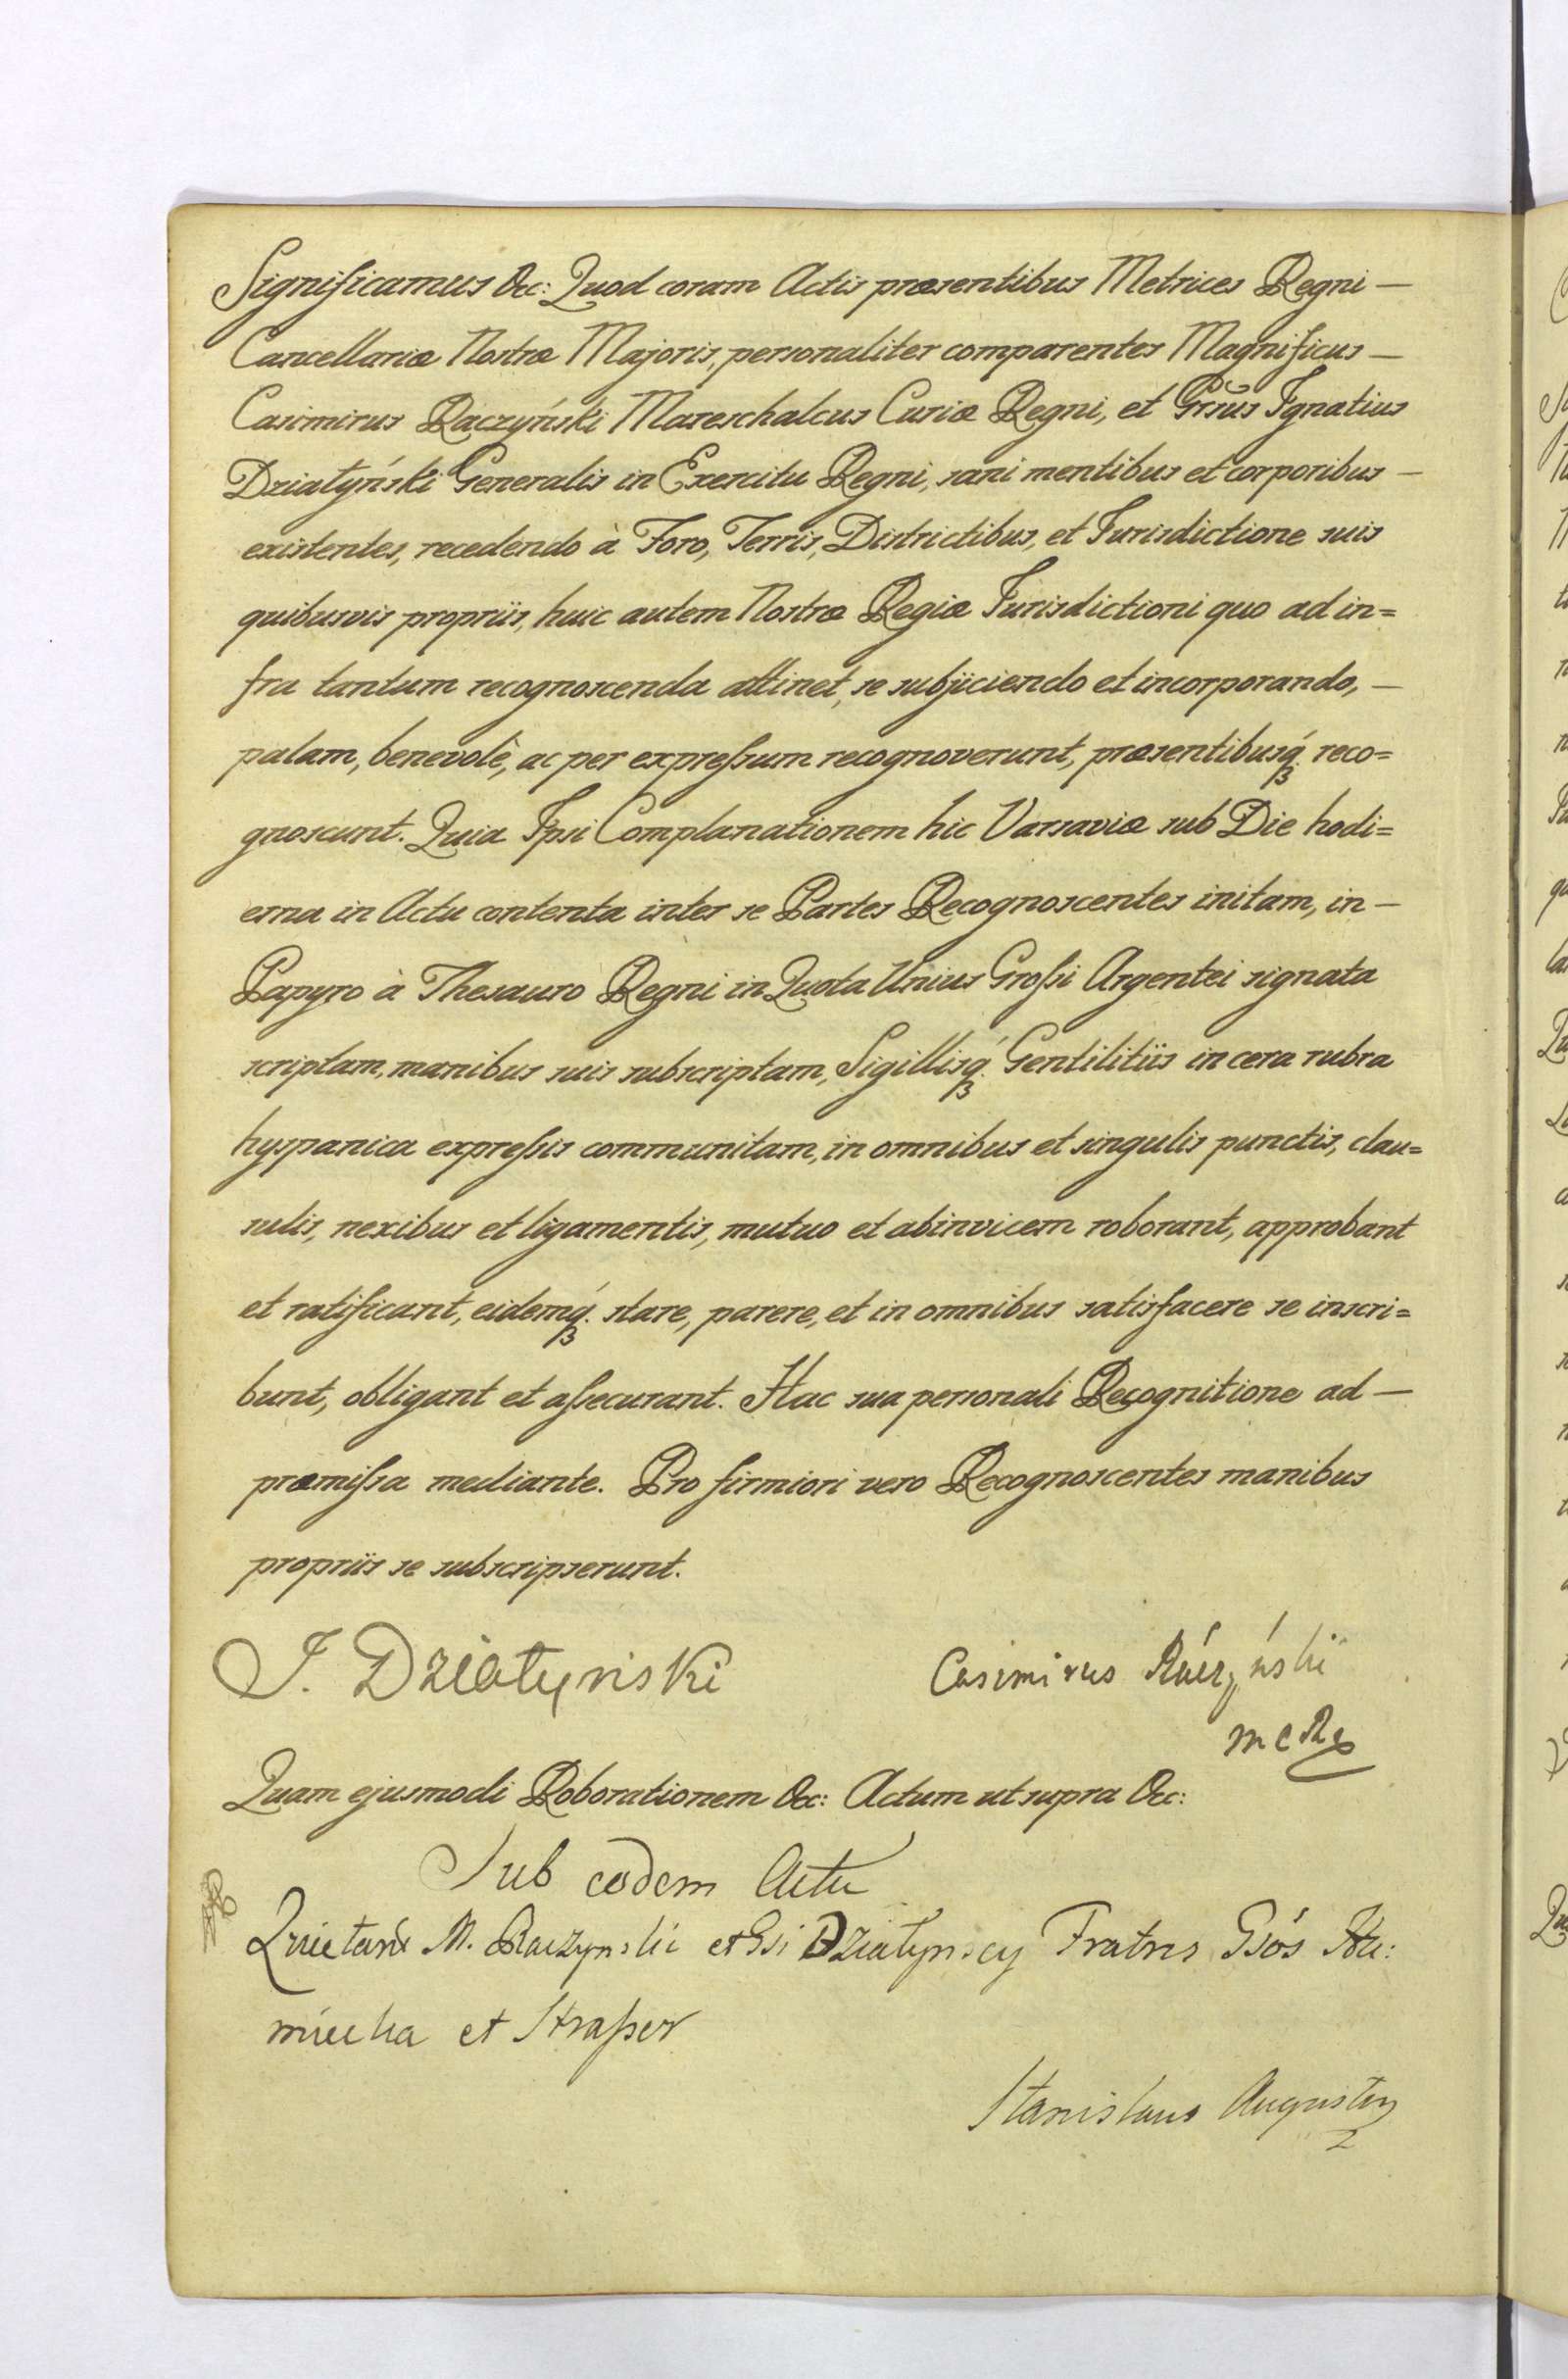 Significamus &c: Quod coram Actis præsentibus Metrices Regni —
Cancellariæ Nostræ Majoris, personaliter comparentes Magnificus —
Casimirus Raczyński Mareschalcus Curiæ Regni, et Grsus Ignatius
Działyński Generalis in Exercitu Regni, sani mentibus et corporibus —
existentes, recedendo à Foro, Terris, Districtibus, et Jurisdictione suis
quibusvis propriis, huic autem Nostræ Regiæ Jurisdictioni quo ad in=
fra tantum recognoscenda attinet, se subjiciendo et incorporando, —
palam, benevolè, ac per expreſsum recognoverunt, præsentibusq́ꝫ reco=
gnoscunt. Quia Ipsi Complanationem hic Varsaviæ sub Die hodi=
erna in Actu contenta inter se Partes Recognoscentes initam, in —
Papyro à Thesauro Regni in Quota Unius Groſsi Argentei signata
scriptam, manibus suis subscriptam, Sigillisq́ꝫ Gentilitiis in cera rubra
hyspanica expreſsis communitam, in omnibus et singulis punctis, clau=
sulis, nexibus et ligamentis, mutuo et abinvicem roborant, approbant
et ratificant, eidemq́ꝫ stare, parere, et in omnibus satisfacere se inscri=
bunt, obligant et aſsecurant. Hac sua personali Recognitione ad —
præmiſsa mediante. Pro firmiori vero Recognoscentes manibus
propriis se subscripserunt.
J. Działyński
Casimirus Raczyński
MCR
Quam ejusmodi Roborationem &c: Actum ut supra &c:
Sub eodem Actu
M. Raczynski et Gsi Dziatynscy Fratres Gsós
et Straſser
Stanislaus Augustus